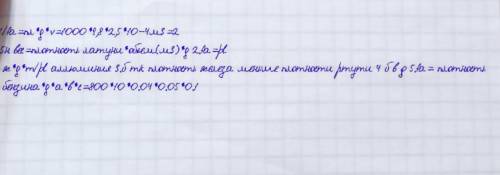 1 Fa=пж*g*v=1000*9,8*2,5*10-4м3=2
5н вес=плотность латуни*обем(м3)*g 2 Fa=pl
ж*g*m/pl аллюминия 3,б тк плотность железа меньше плотности ртути 4 б в д 5 Fa= плотность
бензина*g*a*b*c=800*10*0,04*0,05*0,1